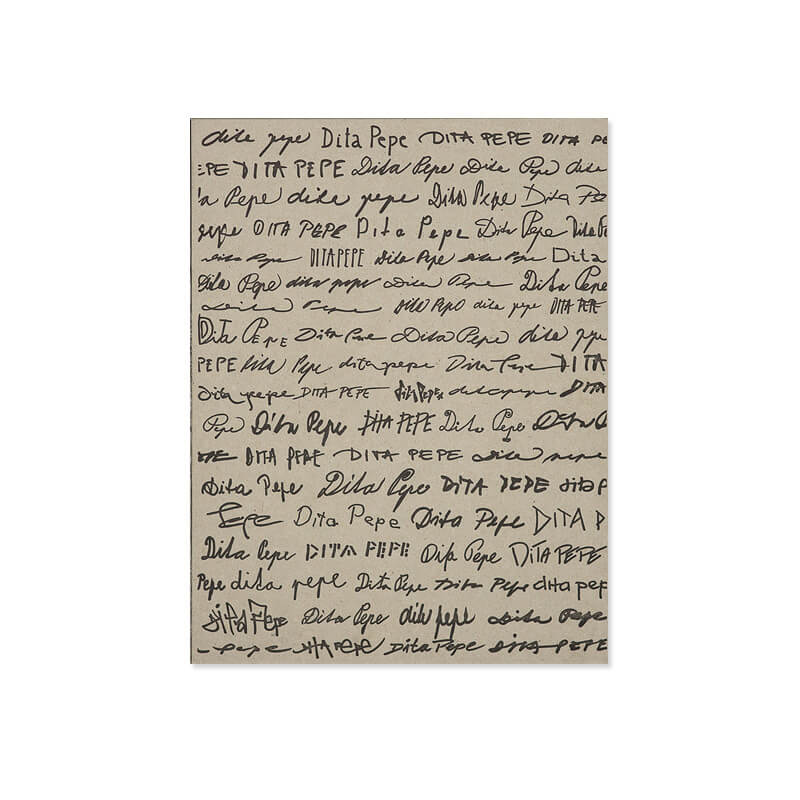 dita pepe Dita Pepe DITA PEPE DITA PE
:PE DITA PEPE Dita Pepe Dita Pepe dita
'a Pepe dita pepe Dita Pepe Dita Pe
pepe DITA PEPE Dita Pepe Dita Pepe Dita Pe
dita Pepe DITAPEPE Dita Pepe dita Pepe Dita
Dita Pepe dita pepe Dita Pepe Dita Pepe
Dita Pepe Dita Pepo dita pepe DITA PEPE
DITA PEPE Dita Pepe Dita Pepe dita pepe
PEPE Dita Pepe dita pepe Dita Pepe DITA
dita pepe DITA PEPE Dita Pepe ditapepe DITA
Pepe Dita Pepe DITA PEPE Dita Pepe Dita
DITA PEPE DITA PEPE Dita pepe
Dita Pepe Dita Pepe DITA PEPE dita P
Pepe Dita Pepe Dita Pepe DITA P
Dita Pepe DITA PEPE Dita Pepe DITA PEPE
Pepe dita pepe Dita Pepe Dita Pepe dita pep
Dita Pepe Dita Pepe dita pepe Dita Pepe
pepe DITA PEPE Dita Pepe DITA PEPE